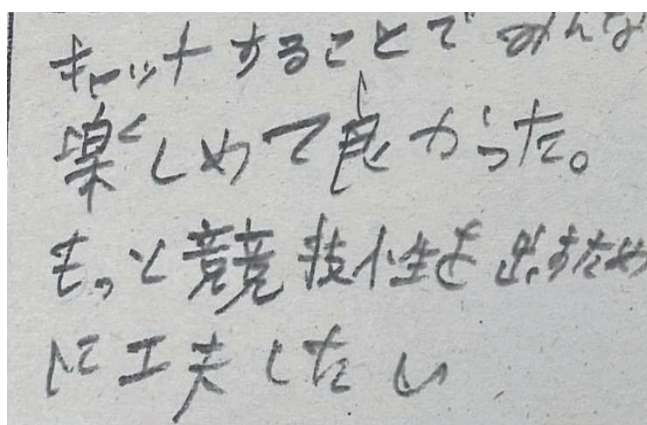 キャットすることでみんな
楽しめて良かった。
もっと競技性を出すため
に工夫したい